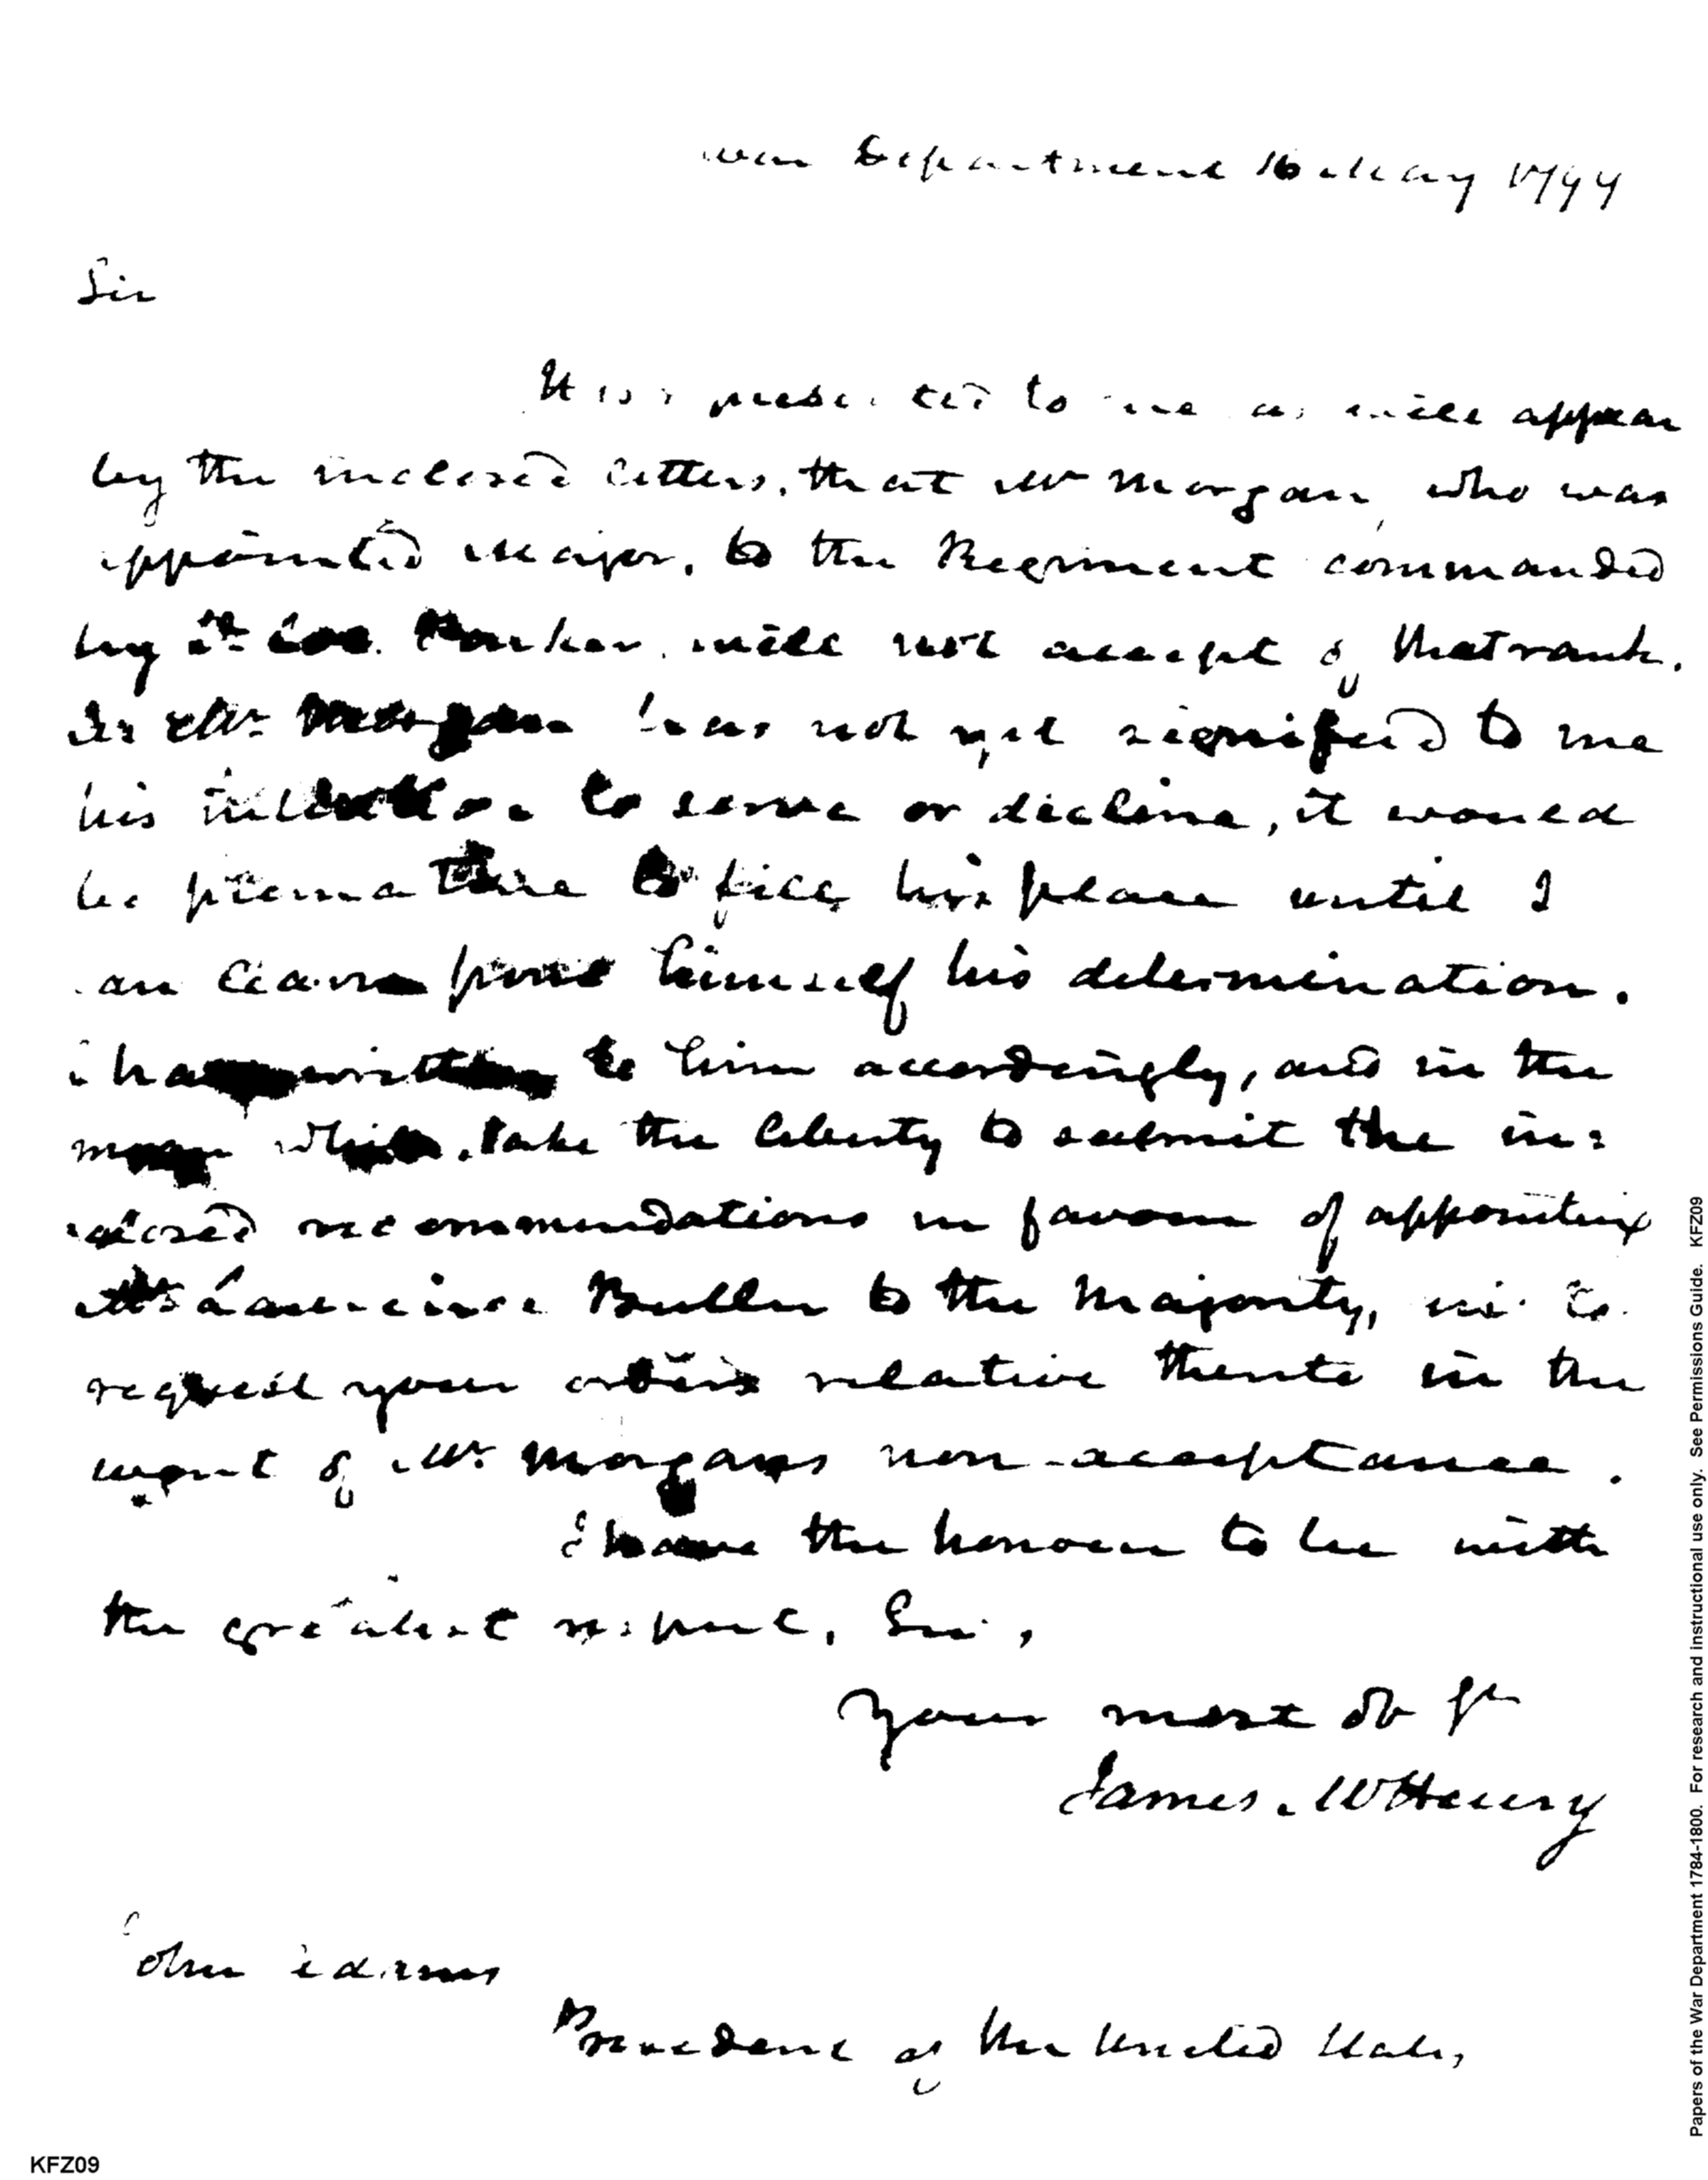 War Department 16 May 1799
Sir
It is represented to me as will appear
by the inclosed letters, that Mr Morgan, who was
appointed Major, to the Regiment commanded
by Lt Col. Parker, will not accept of that rank.
As Mr. Morgan has not yet signified to me
his intention to serve or decline, it would
be premature to fill his place until I
can learn from himself his determination.
I have written to him accordingly, and in the
mean while, take the liberty to submit the in=
closed recommendations in favour of appointing
Mr Lawrence Butler to the Majority, and to
request your orders relative thereto in the
event of Mr. Morgans non-acceptance.
I have the honour to be with
the greatest respect, Sir,
Your most Ob St
James McHenry
John Adams
President of the United States,
KFZ09
Papers of the War Department 1784-1800. For research and instructional use only. See Permissions Guide. KFZ09